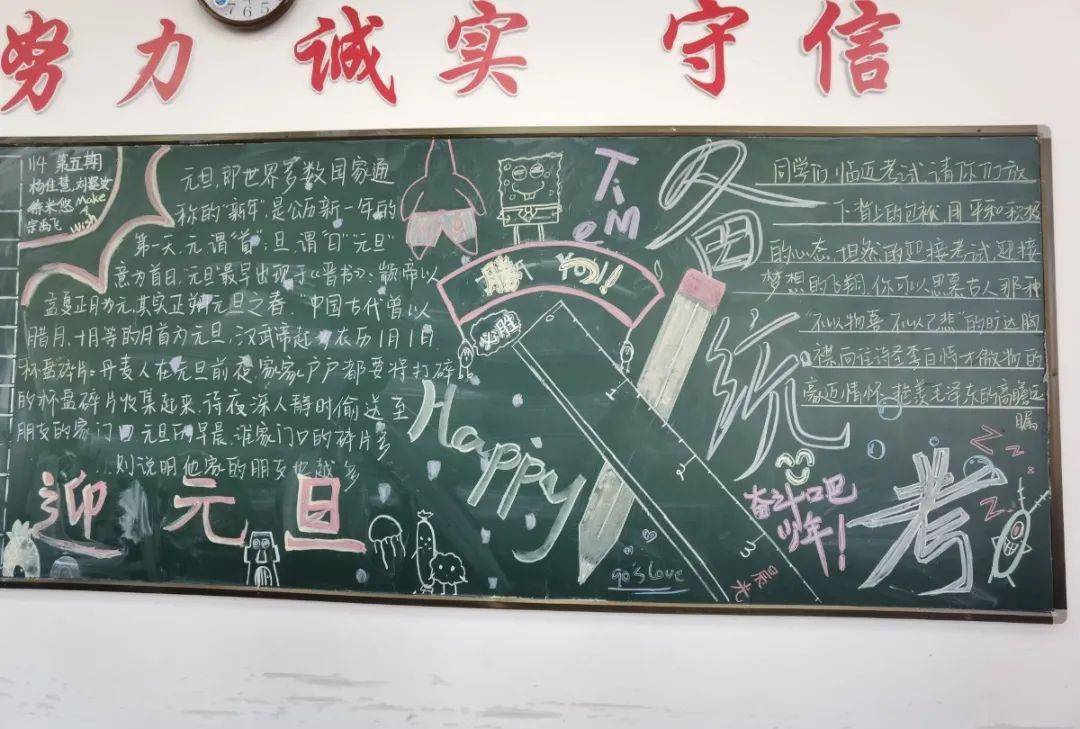 努力 诚实 守信
114 第五期
Make
A
Wish
元旦,即世界多数国家通
称的“新年”是公历新一年的
第一天.元,谓“首”;旦,谓“日”“元旦”
意为首日,“元旦”最早出现于《晋书》:颛帝以
孟夏正月为元,其实正朔元旦之春.中国古代曾以
腊月、十月等的月首为元旦,汉武帝起,农历1月1日
杯盘碎片:丹麦人在元旦前夜,家家户户都要将打碎
的杯盘碎片收集起来,待夜深人静时偷送至
朋友的家门口.元旦的早晨,谁家门口的碎片多
则说明他家的朋友也越多
迎元旦
TiMe
必胜
Happy
1
2
3
90's Love
备统考
同学们,临近考试,请你们放
下肩上的包袱,用平和积极
的心态,坦然的迎接考试,迎接
梦想的飞翔.你可以思慕古人那种
“不以物喜 不以己悲”的旷达胸
襟
毛泽东的高瞻远
瞩
奋斗吧
少年!
Z
Z
Z